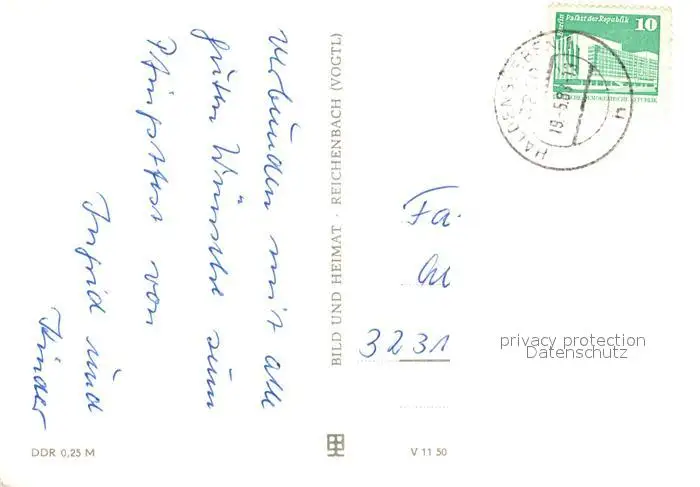 verbunden mit alle
guten Wünsche zum
Pfingstfest von
Ingrid und
Kinder
BILD UND HEIMAT · REICHENBACH (VOGTL)
Berlin
Palast der Republik
10
DEUTSCHE DEMOKRATISCHE REPUBLIK
HALDENSLEBEN
19.-5.8
Fa.
3231
privacy protection
Datenschutz
DDR 0,25 M
V 11 50